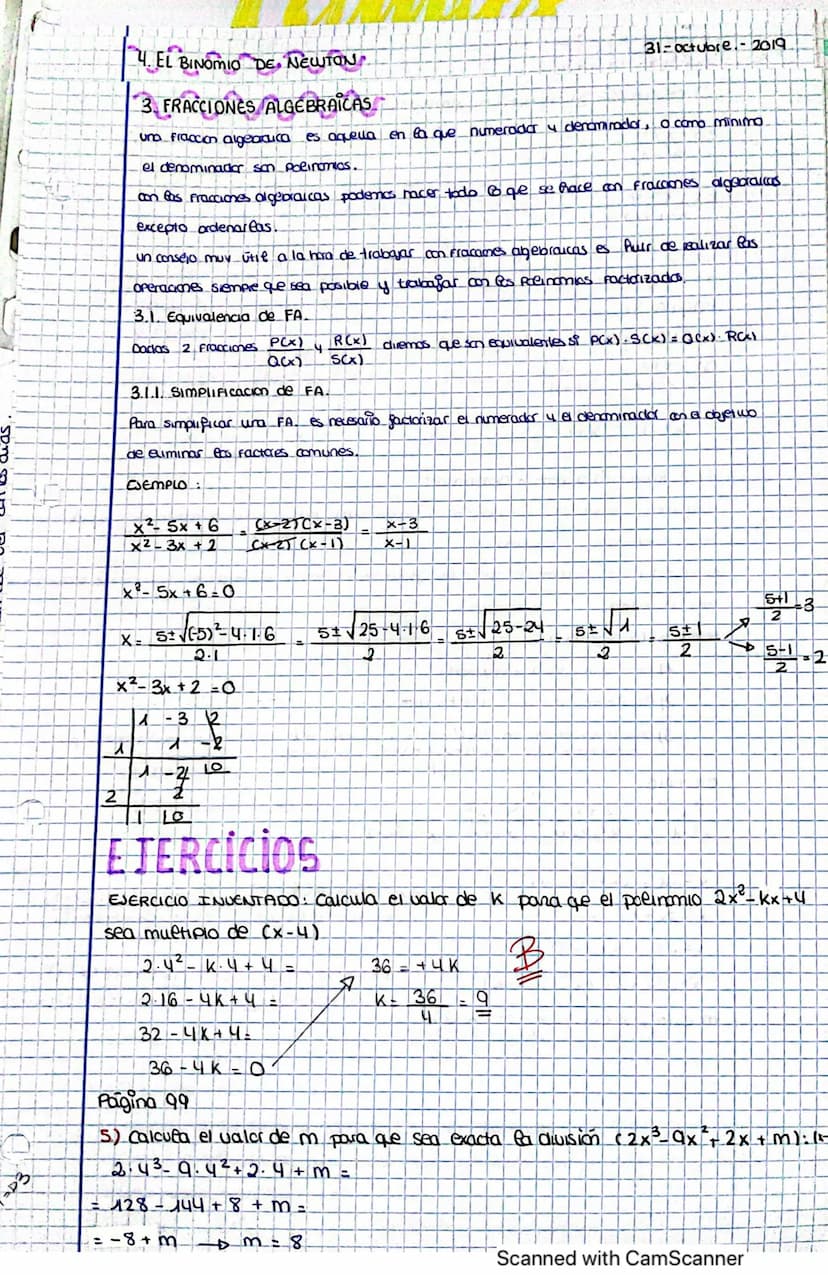 31-octubre.-2019
4. EL BINOMIO DE NEWTON.
3. FRACCIONES ALGEBRAICAS.
una fracción algebraica es aquella en la que numerador y denominador, o como mínimo
el denominador son polinomios.
con las fracciones algebraicas podemos hacer todo lo que se hace con fracciones algebraicas
excepto ordenarlas.
un consejo muy útil a la hora de trabajar con fracciones algebraicas es huir de realizar las
operaciones siempre que sea posible y trabajar con los polinomios factorizados.
3.1. Equivalencia de FA.
Dadas 2 fracciones P(x)/Q(x) y R(x)/S(x) diremos que son equivalentes si P(x)·S(x)=Q(x)·R(x)
3.1.1. SIMPLIFICACIÓN de FA.
Para simplificar una FA. es necesario factorizar el numerador y el denominador con el objetivo
de eliminar los factores comunes.
EJEMPLO:
x²-5x+6/x²-3x+2 = (x-2)(x-3)/(x-2)(x-1) = x-3/x-1
x²-5x+6=0
x= 5±√(-5)²-4·1·6/2·1 = 5±√25-4·1·6/2 = 5±√25-24/2 = 5±√1/2 = 5±1/2
5+1/2=3
5-1/2=2
x²-3x+2=0
1 -3 2
1 1 -2
1 -2 0
2 2
1 0
EJERCICIOS
EJERCICIO INVENTADO: Calcula el valor de K para qe el polinomio 2x²-kx+4
sea multiplo de (x-4)
2·4²-K·4+4=
2·16-4K+4=
32-4K+4=
36-4K=0
36=+4K
K= 36/4 = 9
B
Página 99
5.) Calcula el valor de m para qe sea exacta la división (2x³-9x²+2x+m):(x-
2·4³-9·4²+2·4+m=
=128-144+8+m=
=-8+m → m=8
Scanned with CamScanner